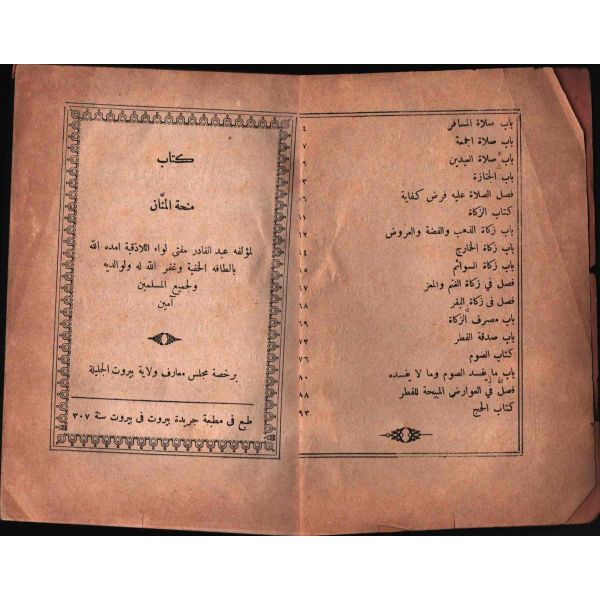 باب صلاة المسافر ٤
باب صلاة الجمعة ٧
باب صلاة العيدين ٩
باب الجنازة ٣
فصل الصلاة عليه فرض كفاية ٠٦
كتاب الزكاة ١١
باب زكاة الذهب والفضة والعروض ١٢
باب زكاة الخارج ١٤
باب زكاة السوائم ١٥
فصل في زكاة الغنم والمعز ١٧
فصل في زكاة البقر ١٨
باب مصرف الزكاة ٦٩
باب صدقة الفطر ٧٣
كتاب الصوم ٧٦
باب ما يفسد الصوم وما لا يفسده ٨٠
فصل في العوارض المبيحة للفطر ٨٨
كتاب الحج ٩٣
كتاب
منحة المنَّان
لمؤلفه عبد القادر مفتى لواء اللاذقية امده الله
بالطافه الخفية وغفر الله له ولوالديه
ولجميع المسلمين
آمين
برخصة مجلس معارف ولاية بيروت الجليلة
طبع فى مطبعة جريدة بيروت فى بيروت سنة ٣٠٧